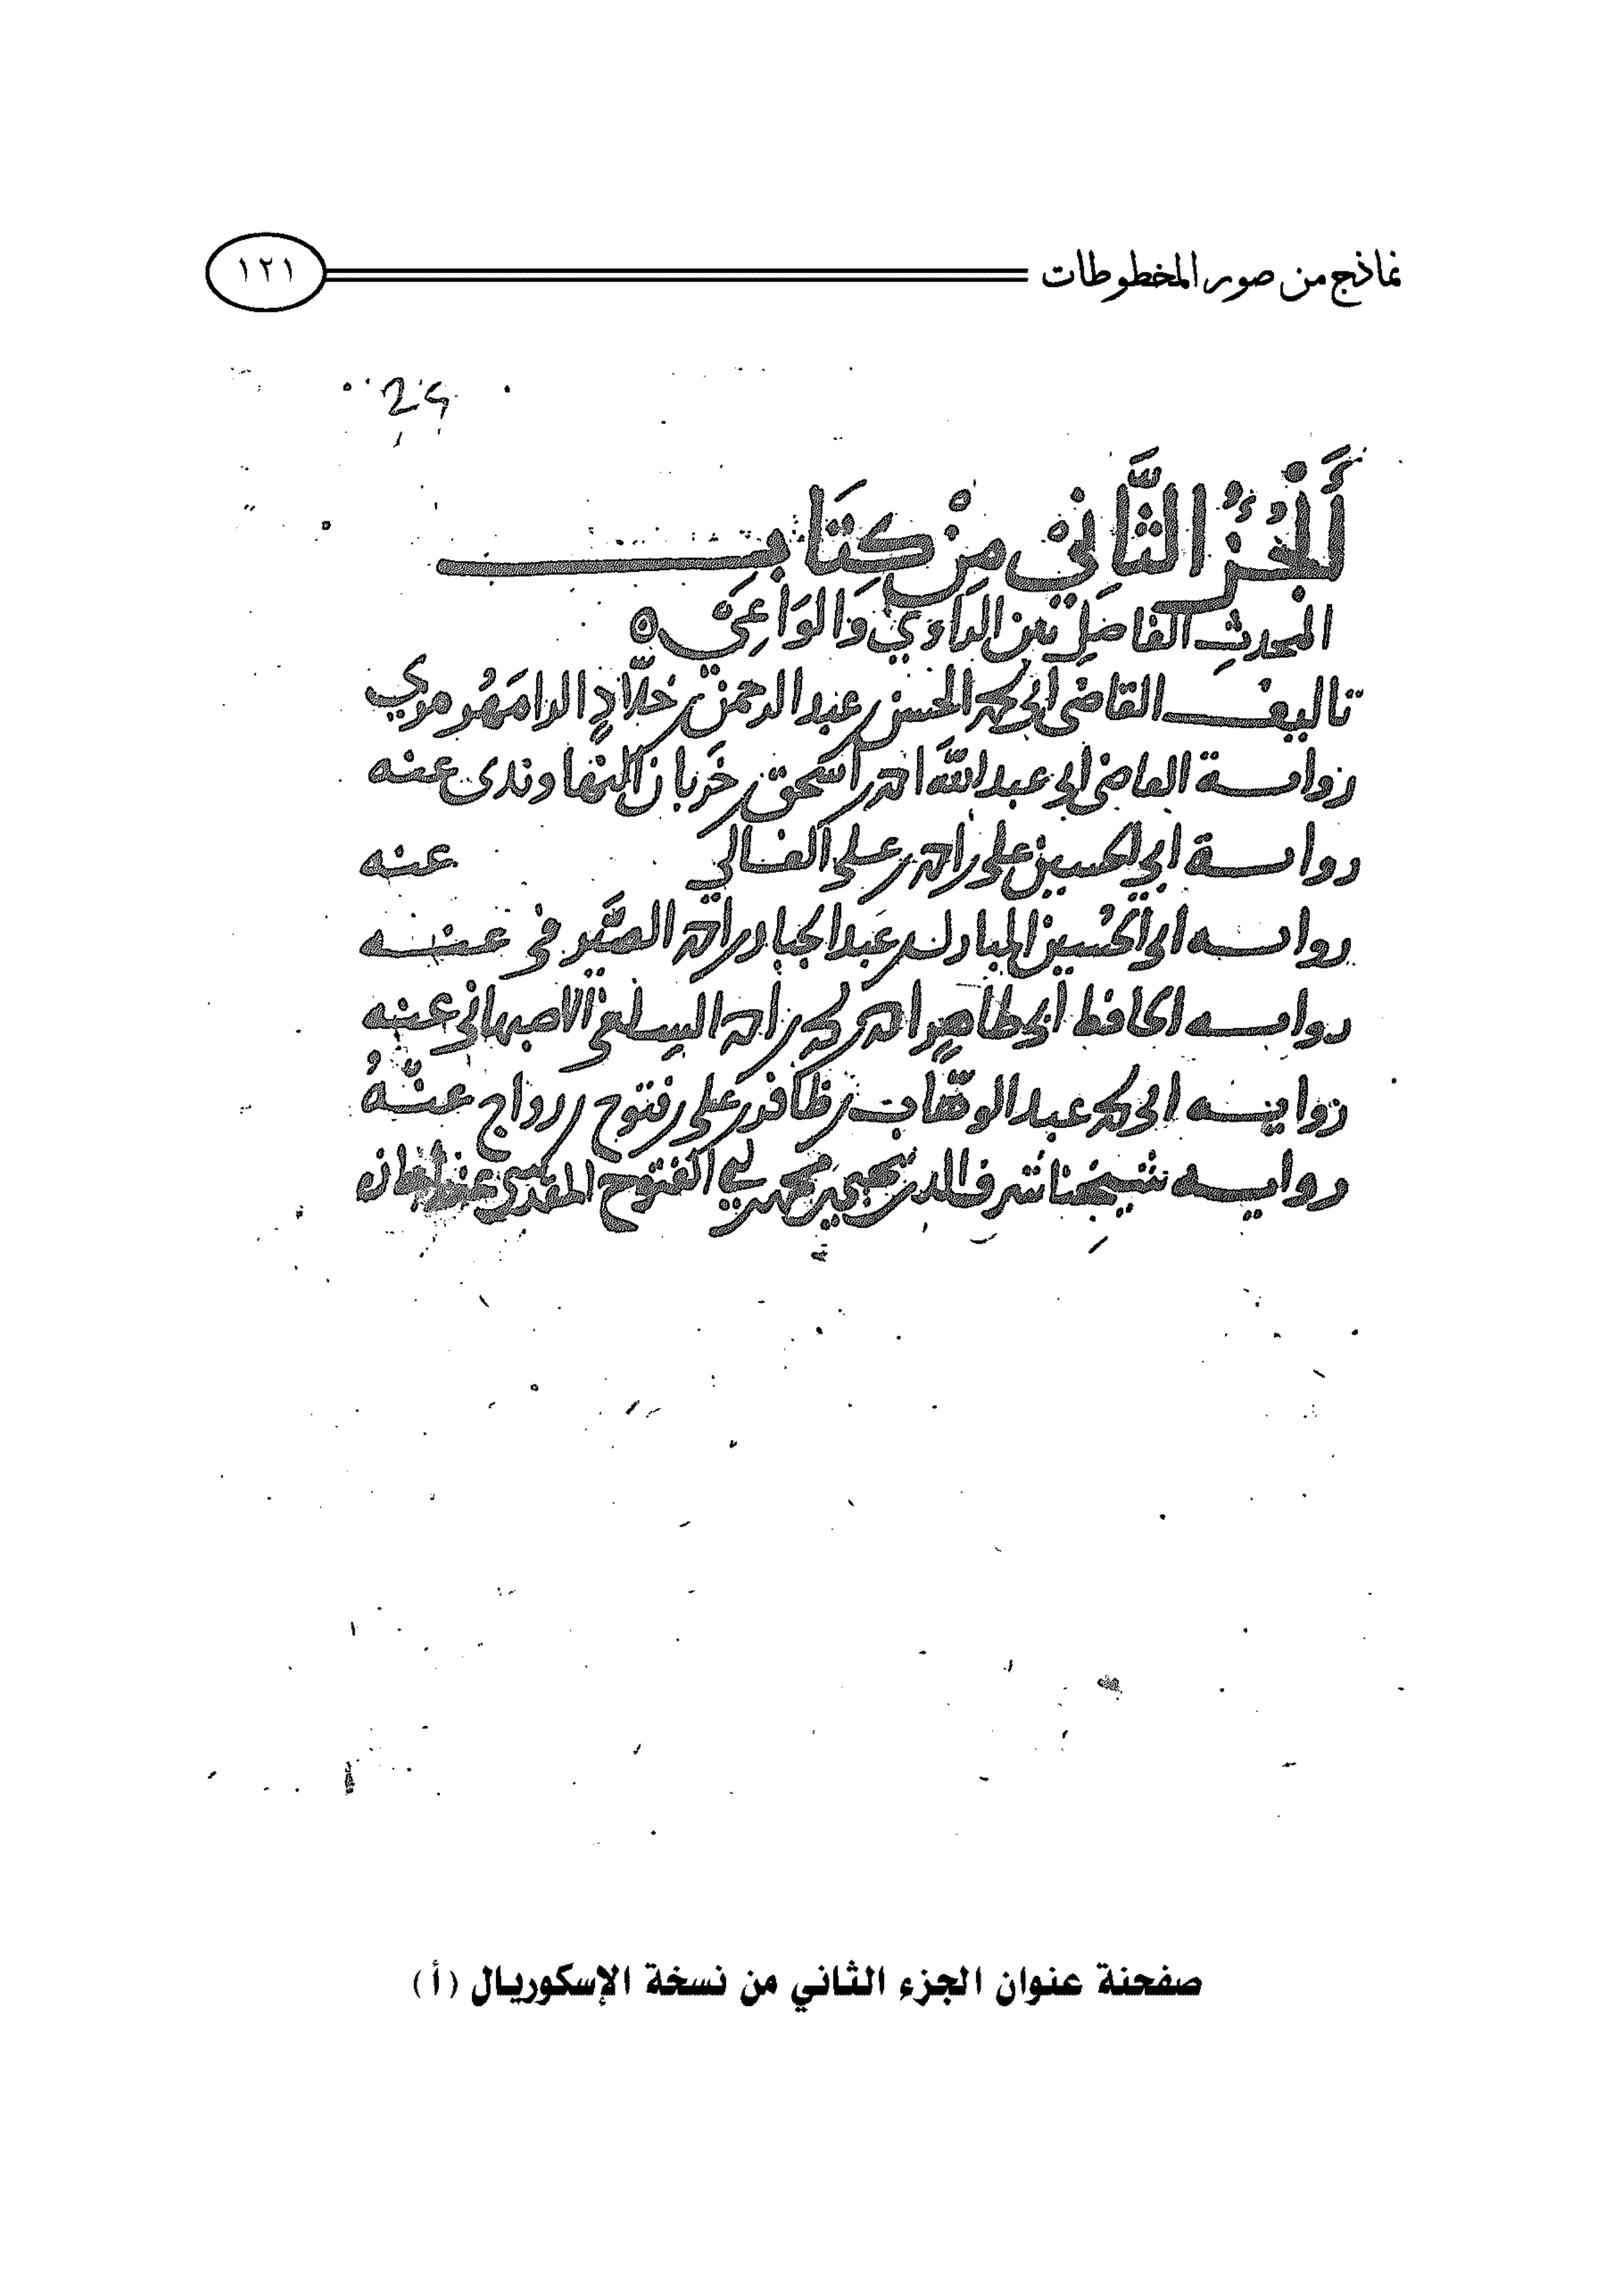 نماذج من صور المخطوطات ١٢١
أَلْجُزْءُ الثَّانِيْ مِنْ كِتَاب
المحدثِ الفاصِلِ بين الرَاوِيْ وَالوَاعِيْ ه
تاليف القاضى ابى محمد الحسن بن عبد الرحمن بن خلَّادٍ الرامَهُرمزي
رواية القاضى ابى عبد اللَّه احمد بن اسحق بن خَربان النهاوندى عنه
رواية ابي الحسين على بن احمد بن على الفالي عنه
رواية ابى الحُسين المبارك بن عبد الجبار بن احمد الصَّيْرفى عنه
رواية الحافظ ابى طاهرٍ احمد بن محمد بن احمد السِلفي الاصبهانى عنه
رواية ابى محمد عبد الوهَّاب بن ظافر بن على بن فتوح بن رواج عنْهُ
رواية شيخِنا شرف الدين يحيى بن محمد بن ابي الفتوح المقدسى عنه
صفحنة عنوان الجزء الثاني من نسخة الإسكوريـال (أ)